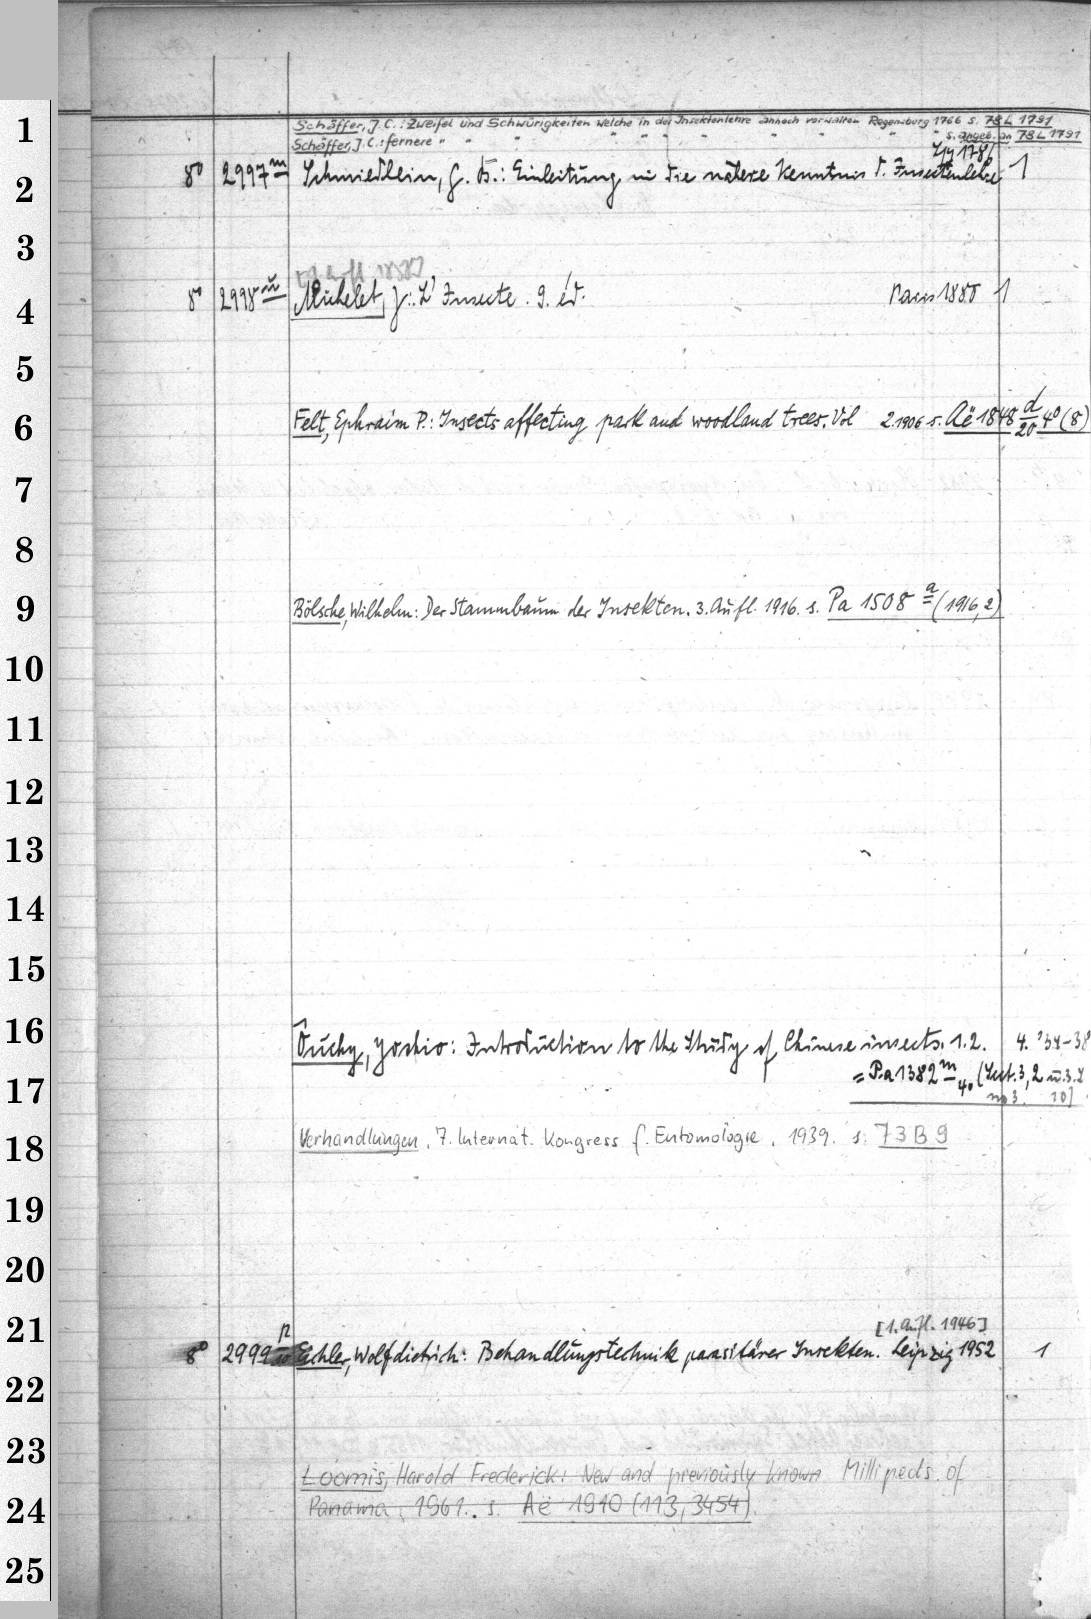 1 Schäffer, J. C.: Zweifel und Schwürigkeiten welche in der Insektenlehre annoch vorwalten Regensburg 1766 s. 78 L 1791
Schäffer, J. C.: fernere " " " " " " " " " " s. angeb. an 78 L 1791
Lzg 1786
2 8° 2997 m Schmiedlein, G. B.: Einleitung in die nähere Kenntnis d. Insectenlehre 1
3
4 8° 2998 Michelet, J.: L'Insecte. 9. éd. Paris 1880 1
5
6 Felt, Ephraim P.: Insects affecting park and woodland trees. Vol 2. 1906 s. Aë 1848 d/20 4° (8)
7
8
9 Bölsche, Wilhelm: Der Stammbaum der Insekten. 3. Aufl. 1916. s. Pa 1508 a (1916,2)
10
11
12
13
14
15
16 Ôuchy, Yoshio: Introduction to the Study of Chinese insects. 1.2. 4. '34-38
17 = Pa 1382 m 4° (Sect. 3, 2 u. 3.
no 3. 10)
18 Verhandlungen. 7. Internat. Kongress f. Entomologie. 1939. s. 73 B 9
19
20
[1. Aufl. 1946]
21 8° 2999 Eichler, Wolfdietrich: Behandlungstechnik parasitärer Insekten. Leipzig 1952 1
22
23 Loomis, Harold Frederick: New and previously known Millipeds of
24 Panama. 1961. s. Aë 1910 (113, 3454).
25